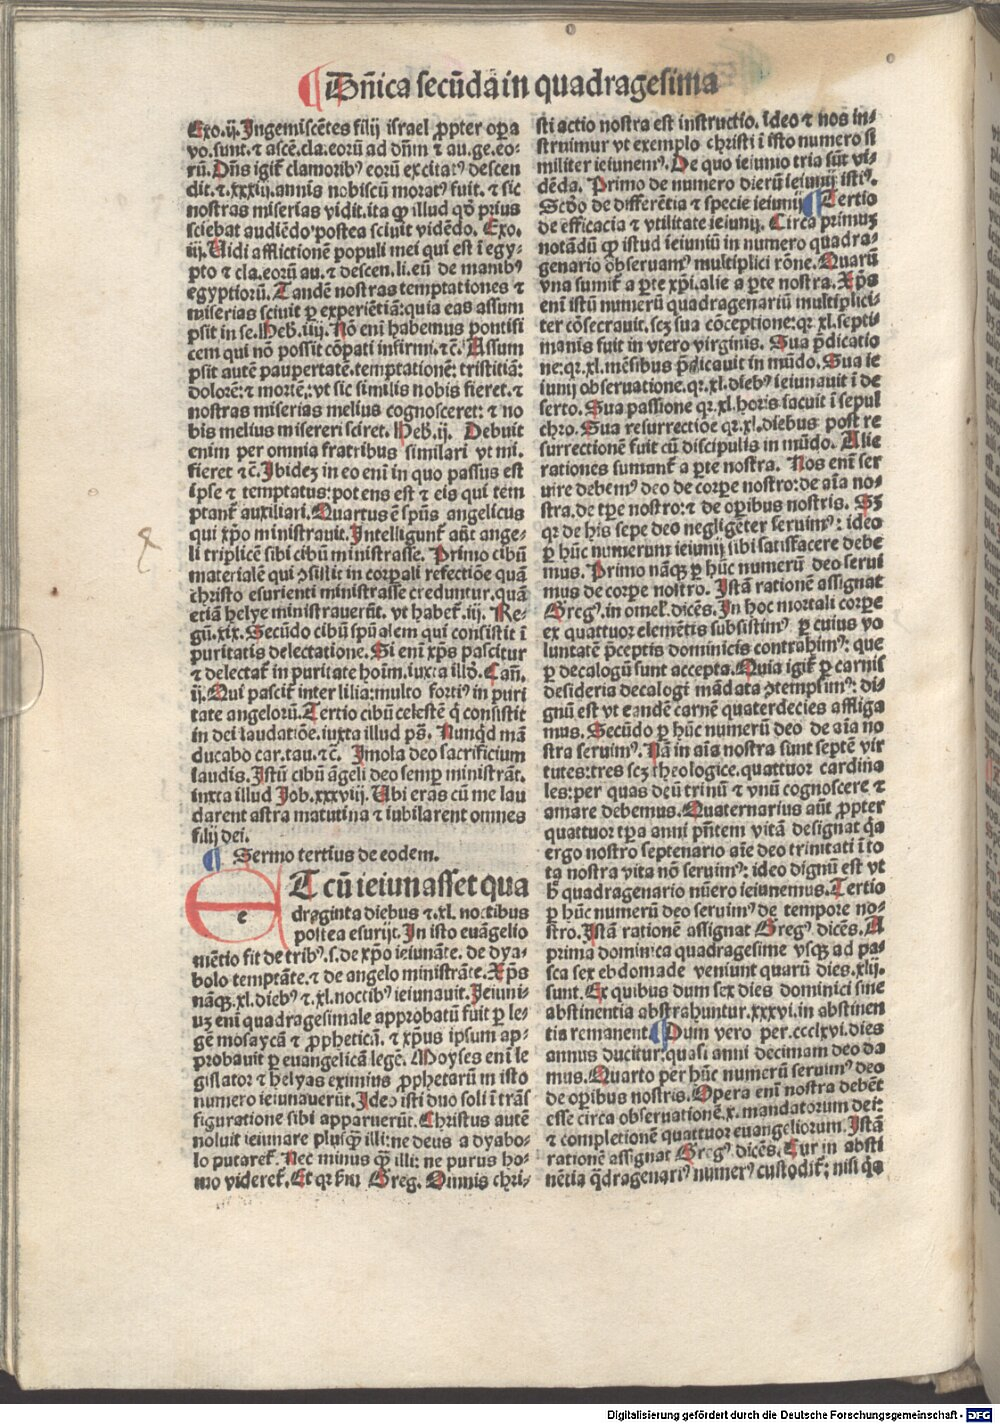 ¶ Dñica secūda in quadragesima
Exo.ij. Ingemiscētes filij israel ꝓpter oꝑa
vo.sunt.⁊ ascē.cla.eorū ad dn̄m ⁊ au.ge.eo-
rū. Dn̄s igit̄ clamoribꝰ eorū excitatꝰ descen
dit.⁊.xxxiij.annis nobiscū moratꝰ fuit.⁊ sic
nostras miserias vidit.ita ꝙ illud qd̄ prius
sciebat audiēdo postea sciuit vidēdo. Exo.
iij. Uidi afflictionem populi mei qui est ī egy-
pto ⁊ cla.eorū au.⁊ descen.li.eū de manibꝰ
egyptiorū. Tandē nostras temptationes ⁊
miserias sciuit ꝑ experiētiā:quia eas assum
psit in se. Heb.iiij. Nō enī habemus pontifi
cem qui nō possit cōpati infirmi.⁊c̄. Assum
psit autē paupertatē.temptationē: tristitiā:
dolorē:⁊ mortē:vt sic similis nobis fieret.⁊
nostras miserias melius cognosceret: ⁊ no
bis melius misereri sciret. Heb.ij. Debuit
enim per omnia fratribus similari vt mi.
fieret ⁊c̄. Ibidez in eo enī in quo passus est
ipse ⁊ temptatus:potens est ⁊ eis qui tem
ptant̄ auxiliari. Quartus ē spūs angelicus
qui xp̄o ministrauit. Intelligunt̄ aūt ange-
li triplicē sibi cibū ministrasse. Primo cibū
materialē qui ꝯsistit in corꝑali refectiōe quā
christo esurienti ministrasse creduntur.quā
etiā helye ministrauerūt. vt habet̄.iij. Re-
gū.xix. Secūdo cibū spūalem qui consistit ī
puritatis delectatione. Si enī xp̄s pascitur
⁊ delectat̄ in puritate hoīm.iuxta illd̄. Cañ.
ij. Qui pascit̄ inter lilia:multo fortiꝰ in puri
tate angelorū. Tertio cibū celestē q̄ consistit
in dei laudatiōe.iuxta illud ps̄. Nunqd̄ mā
ducabo car.tau.⁊c̄. Imola deo sacrificium
laudis. Istū cibū āgeli deo semꝑ ministrāt.
iuxta illud Job.xxxviij. Ubi eras cū me lau
darent astra matutina ⁊ iubilarent omnes
filij dei.
¶ Sermo tertius de eodem.
E T cū ieiunasset qua
draginta diebus ⁊.xl. noctibus
postea esurijt. In isto euāgelio
mētio fit de tribꝰ.s.de xp̄o ieiunāte. de dya-
bolo temptāte.⁊ de angelo ministrāte. Xp̄s
nāqꝫ.xl.diebꝰ ⁊.xl.noctibꝰ ieiunauit. Ieiuni-
uꝫ enī quadragesimale approbatū fuit ꝑ le-
gē mosaycā ⁊ ꝓpheticā. ⁊ xp̄us ipsum ap-
probauit ꝑ euangelicā legē. Moyses enī le
gislator ⁊ helyas eximius ꝓphetarū in isto
numero ieiunauerūt. Ideo isti duo soli ī trās
figuratione sibi apparuerūt. Christus autē
noluit ieiunare plusqꝫ illi:ne deus a dyabo-
lo putaret̄. Nec minus qꝫ illi: ne purus ho-
mo videret̄. Et qr̄ bm̄ Greg. Omnis chri-
sti actio nostra est instructio. ideo ⁊ nos in-
struimur vt exemplo christi ī isto numero si
militer ieiunemꝰ. De quo ieiunio tria sūt vi-
dēda. Primo de numero dierū ieiunij istiꝰ.
Secdo de differētia ⁊ specie ieiunij ¶ Tertio
de efficacia ⁊ vtilitate ieiunij. Circa primuꝫ
notādū ꝙ istud ieiuniū in numero quadra-
genario obseruamꝰ multiplici rōne. Quarū
vna sumit̄ a ꝑte xp̄i.alie a ꝑte nostra. Xp̄s
enī istū numerū quadragenariū multiplici-
ter cōsecrauit. scꝫ sua cōceptione:qr̄ xl.septi-
manis fuit in vtero virginis. Sua p̄dicatio
ne:qr̄.xl.mēsibus p̄dicauit in mūdo. Sua ie
iunij obseruatione.qr̄.xl.diebꝰ ieiunauit ī de
serto. Sua passione qr̄.xl.horis iacuit ī sepul
chro. Sua resurrectiōe qr̄.xl.diebus post re
surrectionē fuit cū discipulis in mūdo. Alie
rationes sumunt̄ a ꝑte nostra. Nos enī ser
uire debemꝰ deo de corꝑe nostro:de aīa no-
stra.de tꝑe nostro:⁊ de oꝑibus nostris. Sꝫ
qr̄ de his sepe deo negligēter seruimꝰ: ideo
ꝑ hūc numerum ieiunij sibi satisfacere debe
mus. Primo nāqꝫ ꝑ hūc numerū deo serui
mus de corꝑe nostro. Istā rationē assignat
Gregꝰ.in omel̄.dicēs. In hoc mortali corꝑe
ex quattuor elemētis subsistimꝰ ⁊ ꝑ cuius vo
luntatē p̄ceptis dominicis contrahimꝰ: que
ꝑ decalogū sunt accepta. Quia igit̄ ꝑ carnis
desideria decalogi mādata ꝯtempsimꝰ: di-
gnū est vt eandē carnē quaterdecies affliga
mus. Secūdo ꝑ hūc numerū deo de aīa no
stra seruimꝰ. Nā in aīa nostra sunt septē vir
tutes:tres scꝫ theologice.quattuor cardina
les:per quas deū trinū ⁊ vnū cognoscere ⁊
amare debemus. Quaternarius aūt ꝓpter
quattuor tꝑa anni pn̄tem vitā designat q̄a
ergo nostro septenario aīe deo trinitati ī to
ta nostra vita nō seruimꝰ: ideo dignū est vt
ħ quadragenario nūero ieiunemus. Tertio
ꝑ hūc numerū deo seruimꝰ de tempore no-
stro. Istā rationē assignat Gregꝰ dicēs. A
prima dominica quadragesime vsqꝫ ad pa-
sca sex ebdomade veniunt quarū dies.xlij.
sunt. Ex quibus dum sex dies dominici sine
abstinentia abstrahuntur.xxxvi.in abstinen
tia remanent. ¶ Dum vero per.ccclxvi.dies
annus ducitur:quasi anni decimam deo da
mus. Quarto per hūc numerū seruimꝰ deo
de oꝑibus nostris. Opera enī nostra debēt
esse circa obseruationē.x.mandatorum dei:
⁊ completionē quattuor euangeliorum. Istā
rationē assignat Gregꝰ dicēs. Cur in absti
nētia q̄dragenariꝰ numerꝰ custodit̄: nisi q̄a
Digitalisierung gefördert durch die Deutsche Forschungsgemeinschaft - DFG